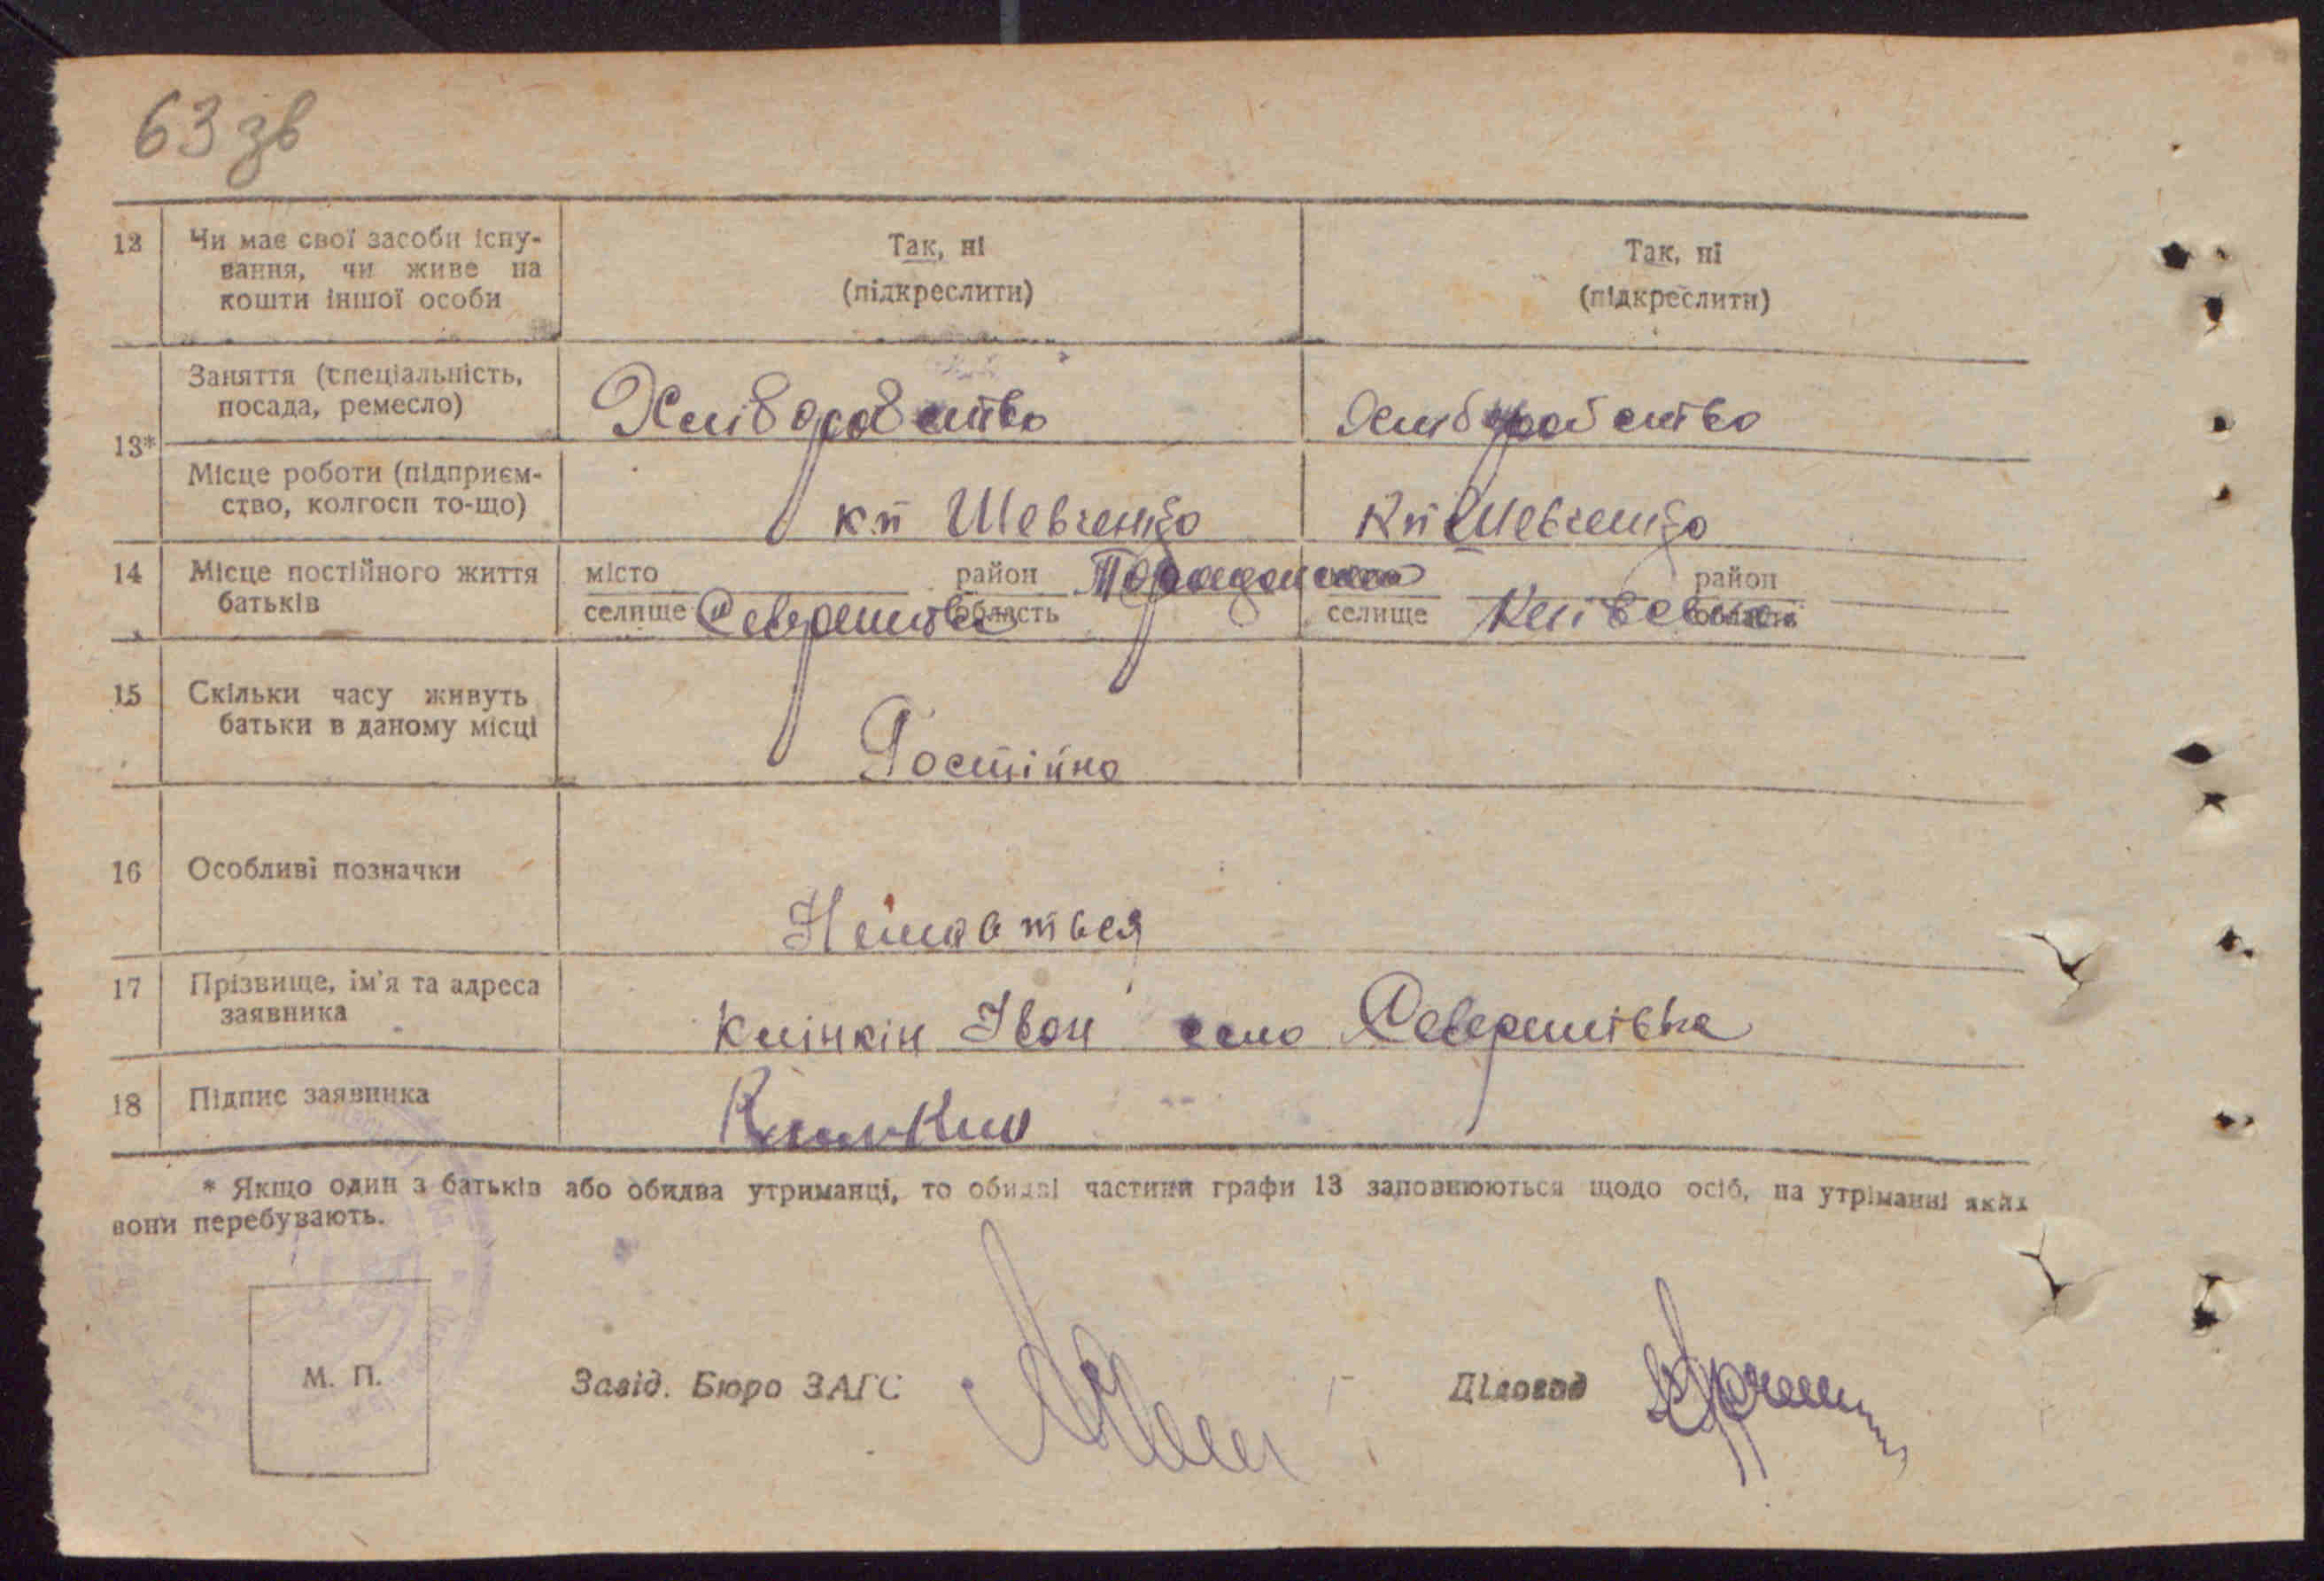 63 зв
12 Чи має свої засоби існу- Так, ні Так, ні
вання, чи живе на (підкреслити) (підкреслити)
кошти іншої особи
13* Заняття (спеціальність, Хліборобство Хліборобство
посада, ремесло)
Місце роботи (підприєм- кп Шевченко кп Шевченко
ство, колгосп то-що)
14 Місце постійного життя місто район район
батьків селище Северинівка область селище Київська область
15 Скільки часу живуть
батьки в даному місці Постійно
16 Особливі позначки
17 Прізвище, ім'я та адреса
заявника Клінкін Іван село Северинівка
18 Підпис заявника
* Якщо один з батьків або обидва утриманці, то обидві частини графи 13 заповнюються щодо осіб, на утріманні яких
вони перебувають.
М. П. Завід. Бюро ЗАГС Діловод